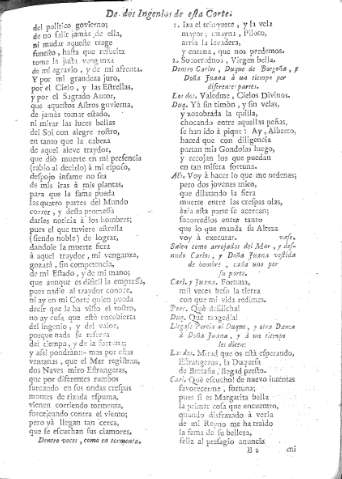 De dos Ingenios de esta Corte.
del politico govierno;
de no salir jamás de ella,
ni mudar aqueste trage
funesto, hasta que resuelta
tome la justa venganza
de mi agravio, y de mi afrenta.
Y por mi grandeza juro,
por el Cielo, y las Estrellas,
y por el Sagrado Autor,
que aquestos Astros govierna,
de jamás tomar estado,
ni mirar las luces bellas
del Sol con alegre rostro,
en tanto que la cabeza
de aquel aleve traydor,
que dió muerte en mi presencia
(rabio al decirlo) á mi esposo,
despojo infame no sea
de mis iras á mis plantas,
para que la fama pueda
las quatro partes del Mundo
correr, y desta promesa
darles noticia á los hombres;
pues el que tuviere estrella
(siendo noble) de lograr,
dandole la muerte fiera
á aquel traydor, mi venganza,
gozará, sin competencia,
de mi Estado, y de mi mano;
que aunque es dificil la empressa,
pues nadie al traydor conoce,
ni ay en mi Corte quien pueda
decir que le ha visto el rostro,
no ay cosa que esté encubierta
del ingenio, y del valor,
porque nada se reserva
del tiempo, y de la fortuna;
y assi poniendo- nos por essas
ventanas, que el Mar registran,
dos Naves miro Estrangeras,
que por diferentes rumbos
surcando en sus ondas crespas
montes de rizada espuma,
vienen corriendo tormenta,
forcejando contra el viento;
pero yá llegan tan cerca,
que se escuchan sus clamores.
Dentro voces, como en tormenta.
1. Iza el trinquete, y la vela
mayor; amayna, Piloto,
arria la
y amaina, que nos perdemos.
2. Socorrednos, Virgen bella.
Dentro Carlos, Duque de Borgoña, y
Doña Juana á un tiempo por
diferentes partes.
Los dos. Valedme, Cielos Divinos.
Duq. Yá sin timòn, y sin velas,
y zozobrada la quilla,
chocando entre aquellas peñas,
se han ido á pique: Ay, Alberto,
haced que con diligencia
partan mis Gondolas luego,
y recojan los que puedan
en tan misera fortuna.
Alb. Voy á hacer lo que me ordenes;
pero dos jovenes miro,
que dilatando la fiera
muerte entre las crespas olas,
ázia esta parte se acercan;
socorredlos entre tanto
que lo que manda su Alteza
voy á executar. vase.
Salen como arrojados del Mar, y desnudo
Carlos, y Doña Juana vestida
de hombre, cada uno por
su parte.
Carl. y Juana. Fortuna,
mil veces beso la tierra
con que mi vida redimes.
Porc. Qué desdicha!
Duq. Qué tragedia!
Llegase Porcia al Duque, y otra Dama
á Doña Juana, y á un tiempo
les dicen:
Las dos. Mirad que os está esperando,
Estrangeros, la Duquesa
de Bretaña, llegad presto.
Carl. Qué escucho! de nuevo intentas
favorecerme, fortuna;
pues si es Margarita bella
la primer cosa que encuentro,
quando disfrazado á verla
de mi Reyno me ha traido
la fama de su belleza,
feliz al presagio anuncia
B 2 mi